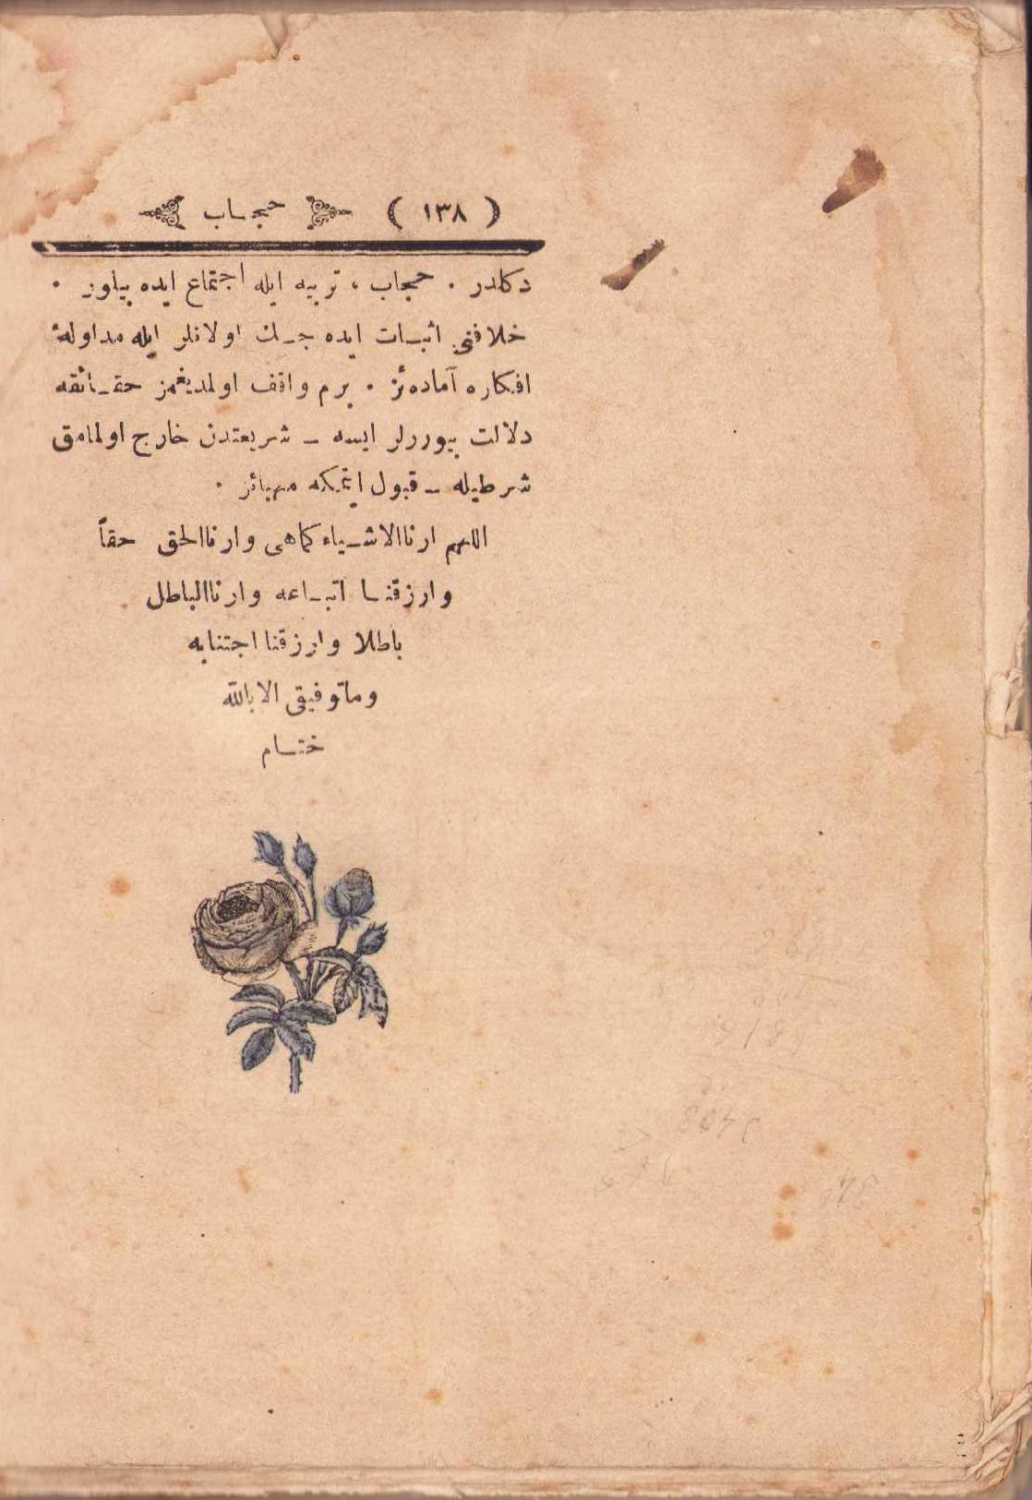 ( ١٣٨ ) حجاب
دكلدر . حجاب ، تربيه ايله اجتماع ايده بيلور .
خلافنى اثبات ايده جك اولانلر ايله مداولهٔ
افكاره آماده‌ئز . بزم واقف اولمديغمز حقائقه
دلالت بيوررلر ايسه ــ شريعتدن خارج اولمامق
شرطيله ــ قبول ايتمكه مهيائز .
اللهم ارناالاشياء كماهى وارناالحق حقاً
وارزقنا اتباعه وارناالباطل
باطلا وارزقنا اجتنابه
وماتوفيقى الابالله
ختام